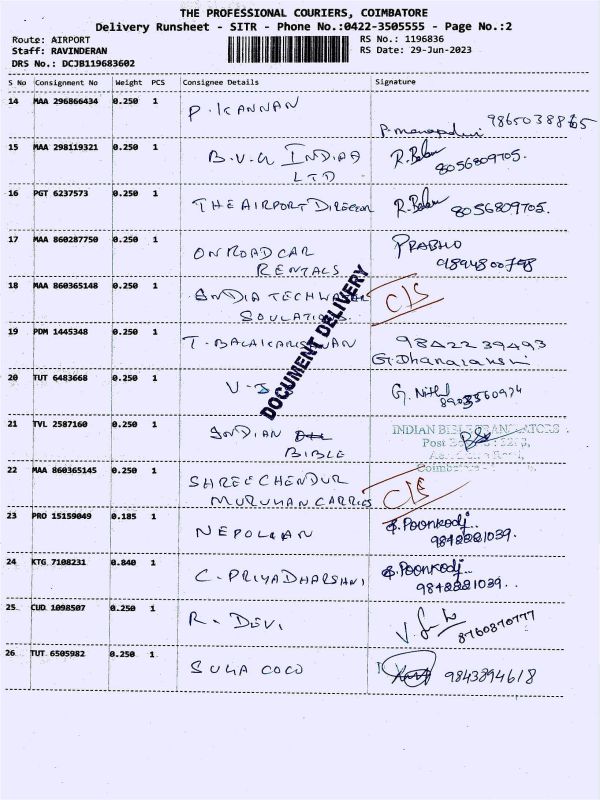 THE PROFESSIONAL COURIERS, COIMBATORE
Delivery Runsheet - SITR - Phone No.:0422-3505555 - Page No.:2
Route: AIRPORT RS No.: 1196836
Staff: RAVINDERAN RS Date: 29-Jun-2023
DRS No.: DCJB119683602
S No Consignment No Weight PCS Consignee Details Signature
14 MAA 296866434 0.250 1 P. KANNAN
15 MAA 298119321 0.250 1 B.V.G INDIA R. Balan
LTD 8056809705.
16 PGT 6237573 0.250 1 THE AIRPORT DIRECTOR R. Balan 8056809705.
17 MAA 860287750 0.250 1 ON ROAD CAR PRABHU
RENTALS
18 MAA 860365148 0.250 1 INDIA TECH C/S
19 PDM 1445348 0.250 1 T. 9842239493
G. Dhanalakshmi
DOCUMENT DELIVERY
20 TUT 6483668 0.250 1 G.
21 TVL 2587160 0.250 1 INDIAN INDIAN BIBLE TRANSLATORS
BIBLE Post
22 MAA 860365145 0.250 1 SHREE CHENDUR C/S
MURUHAN CARRIES
23 PRO 15159049 0.185 1 NEPOLEAN Poonkodi
24 KTG 7108231 0.840 1 C. PRIYADHARSHNI Poonkodi
25 CUD 1098507 0.250 1 R. DEVI V. 8760870777
26 TUT 6505982 0.250 1 SUGA COCO 9843894618